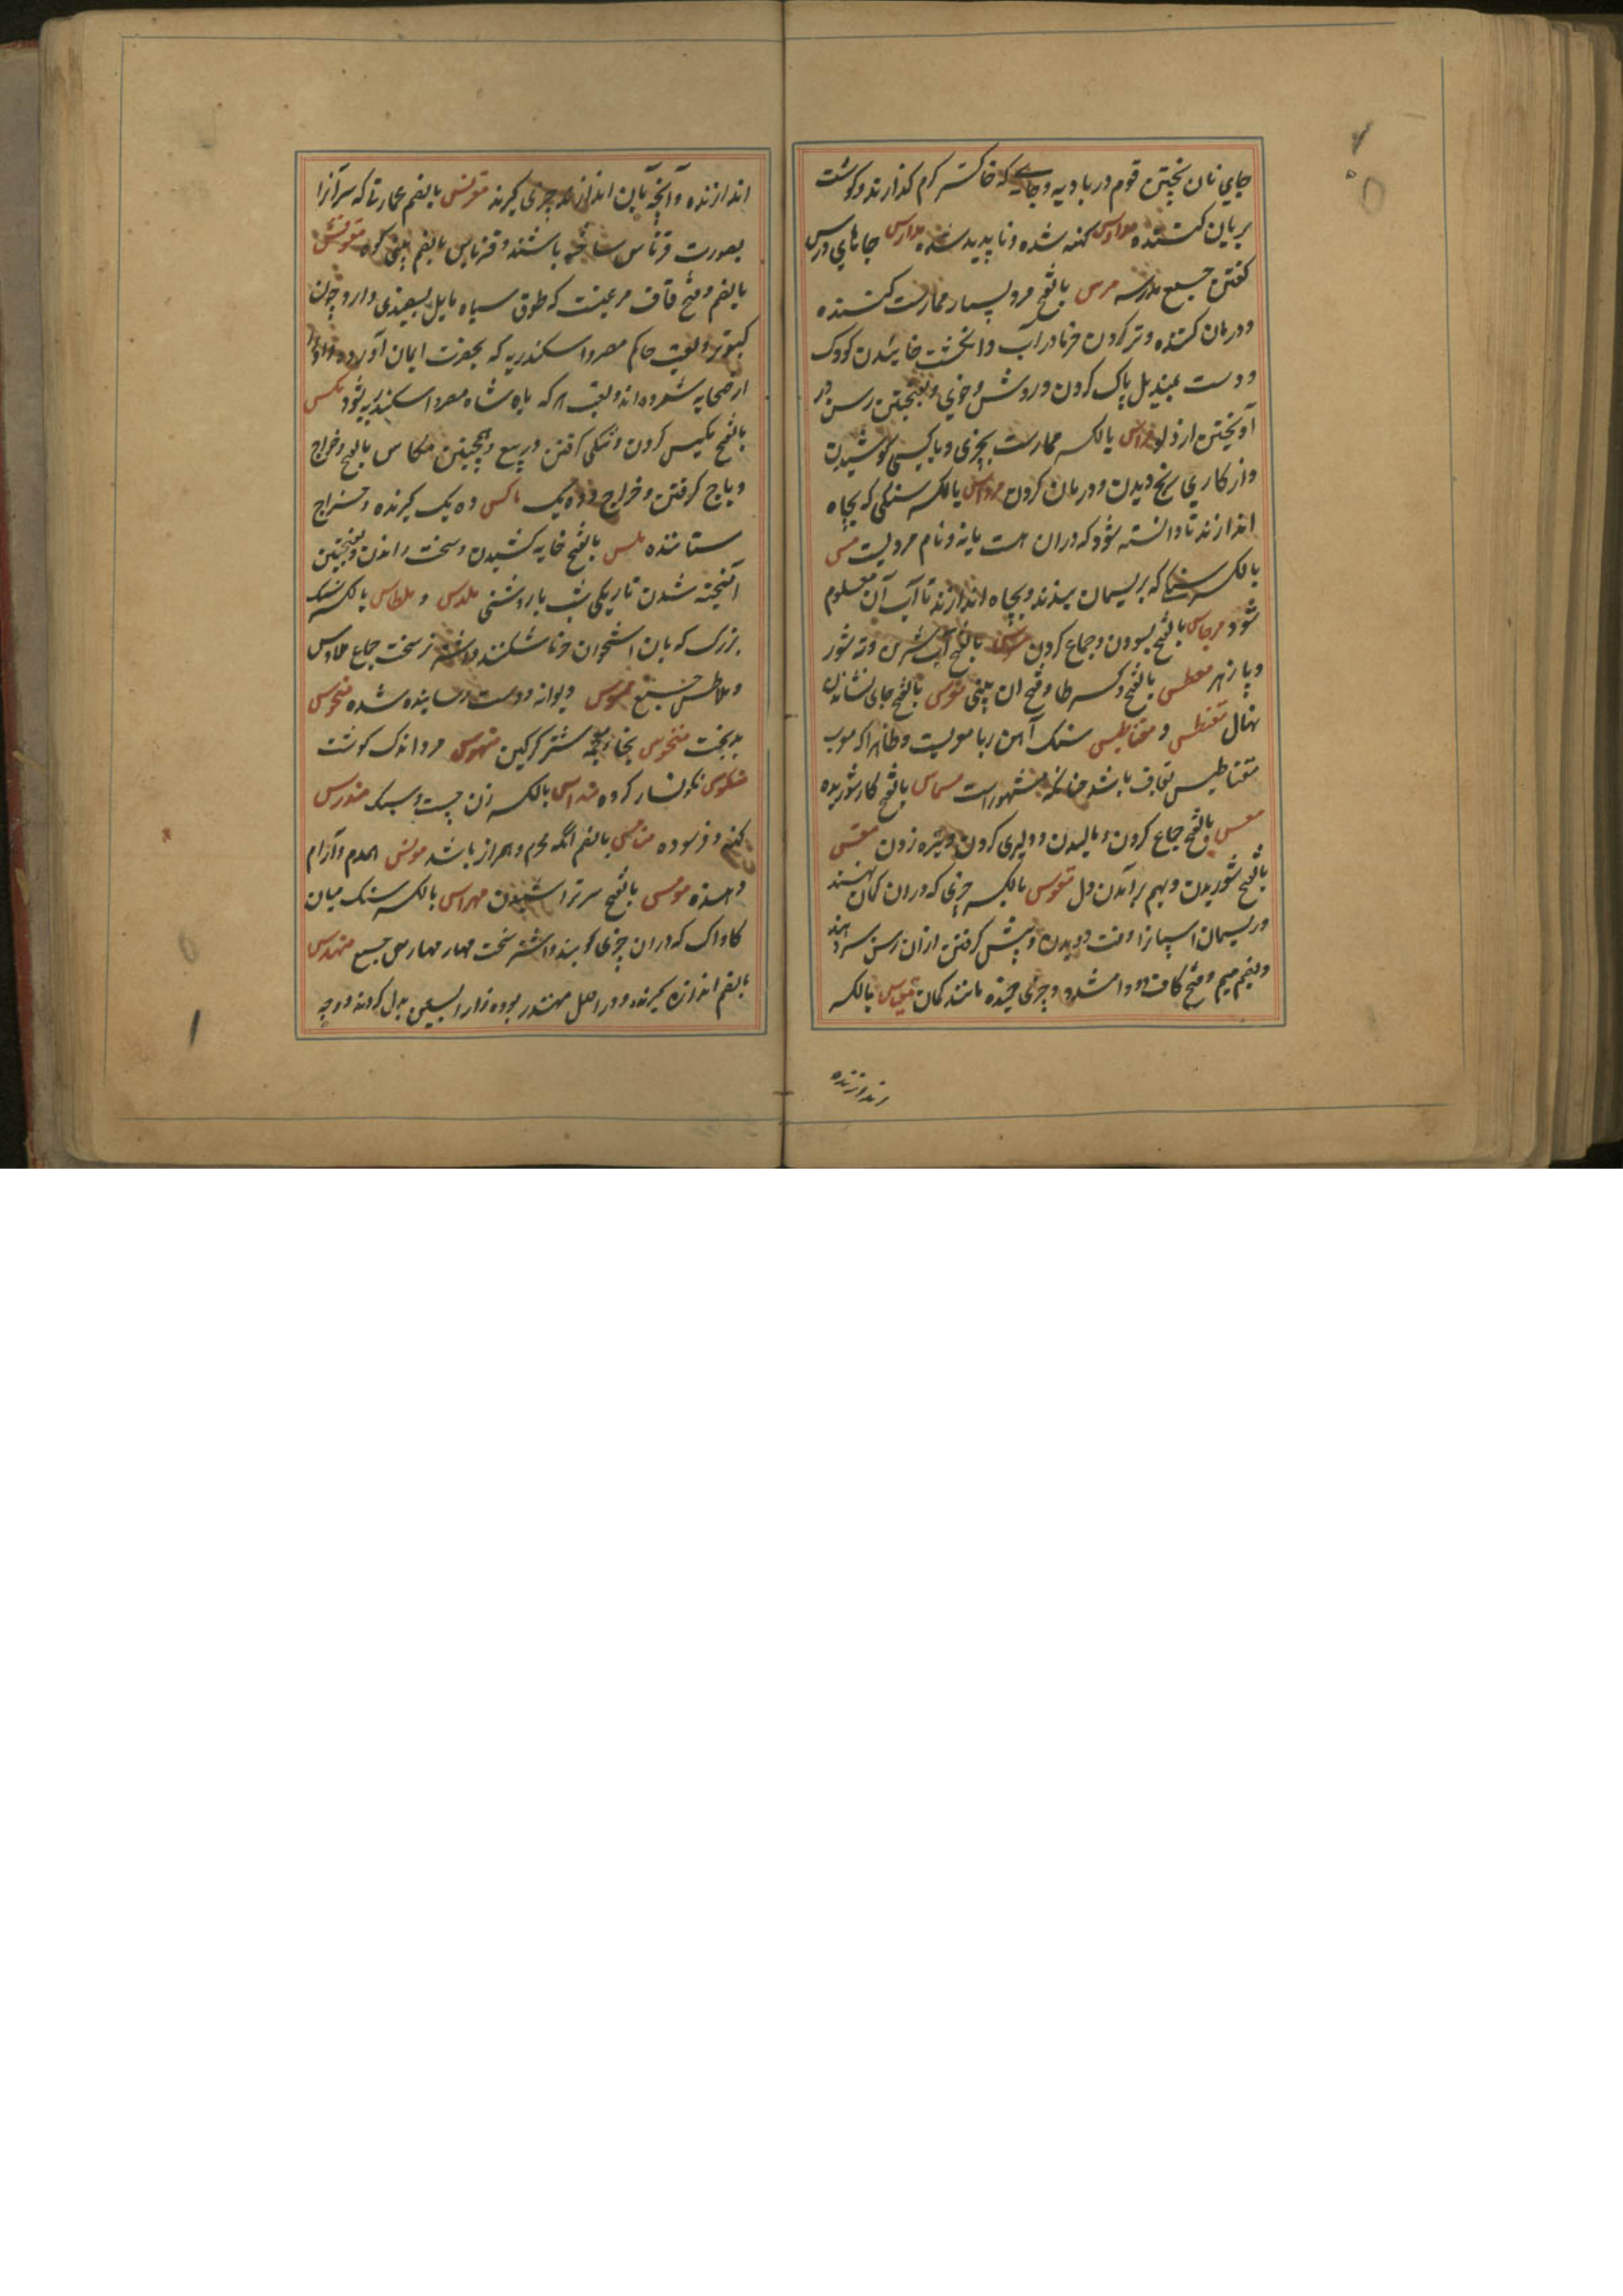 جای نان پختن قوم در بادیه و جایے که خاکستر گرم گذارند و گوشت
بریان کننده مدروس کهنه شده و ناپدید شده مدارس جاهای درس
گفتن جمیع مدرسه مرس بالفتح مرد بسیار ممارست کننده
و درمان کننده و تر کردن خرما در آب و انگشت خاییدن کودک
و دست بمندیل پاک کردن و روش و خوی و بفتحتین رسن در
آویختن از دلو مراس بالکسر ممارست بچیزی و با کسی کوشیدن
و از کاری رنج دیدن و درمان کردن مرداس بالکسر سنگی که بچاه
اندازند تا دانسته شود که دران هست یا نه و نام مردیست
بالکسر سنگے که بریسمان بندند و بچاه اندازند تا آب آن معلوم
شود بالفتح بسودن و جماع کردن بالفتح آب شیرین و نه شور
و پازهر معطس بالفتح و کسر طا و فتح آن بینی مغرس بالفتح جای نشاندن
نهال مغنطس و مغناطیس سنگ آهن ربا معربست و ظاهرا که معرب
مقناطیس بقاف باشد چنانکه مشهور است مسماس بالفتح کار شوریده
معس بالفتح جماع کردن و مالیدن و دلیری کردن و نیزه زدن مقس
بالفتح شوریدن و بهم برآمدن دل مقوس بالکسر چیزی که دران کمان نهند
و ریسمان اسپان را وقت دویدن و پیش گرفتن ازان رسن سر دهند
و بضم میم و فتح قاف و واو مشدد و چیزی خمیده مانند کمان مقیاس بالکسر
اندازنده
اندازنده و آنچه بآن اندازه چیزی گیرند مقرنس بالضم عمارتی که سر آنرا
بصورت قرناس ساخته باشند و قرناس بالضم بینی کوه مقوقس
بالضم و فتح قاف مرغیست که طوق سیاه مایل بسپیدی دارد چون
کبوتر و لقب حاکم مصر و اسکندریه که بحضرت ایمان آورده و او را
از صحابه شمرده‌اند و لقب هر که پادشاه مصر و اسکندریه شود مکس
بالفتح مکیس کردن و تنگی گرفتن در بیع و بفتحتین مکاس بالفتح و خراج
و باج گرفتن و خراج و ده یک ماکس ده یک گیرنده و خراج
ستاننده ملس بالفتح خایه کشیدن و سخت راندن و بفتحتین
آمیخته شدن تاریکی شب با روشنی ملدس و ملطاس بالکسر سنگ
بزرگ که بآن استخوان خرما شکنند و شتر نر سخت جماع ملادس
و ملاطس جمیع ممسوس دیوانه و دست رسانیده شده منحوس
بدبخت منخوس بخا معجمه شتر گرگین منهوس مرد اندک گوشت
منکوس نگونسار کرده مداس بالکسر زن چست و سبک مندرس
کهنه و فرسوده منامس بالضم آنکه محرم و همراز باشد مونس همدم و آرام
دهنده موس بالفتح سر تراشیدن مهراس بالکسر سنگ میان
کاواک که دران چیزی کوبند و شتر سخت مهاریس جمیع مهندس
بالضم اندازه گیرنده و در اصل مهندز بوده زا را بسین بدل کردند و وجه